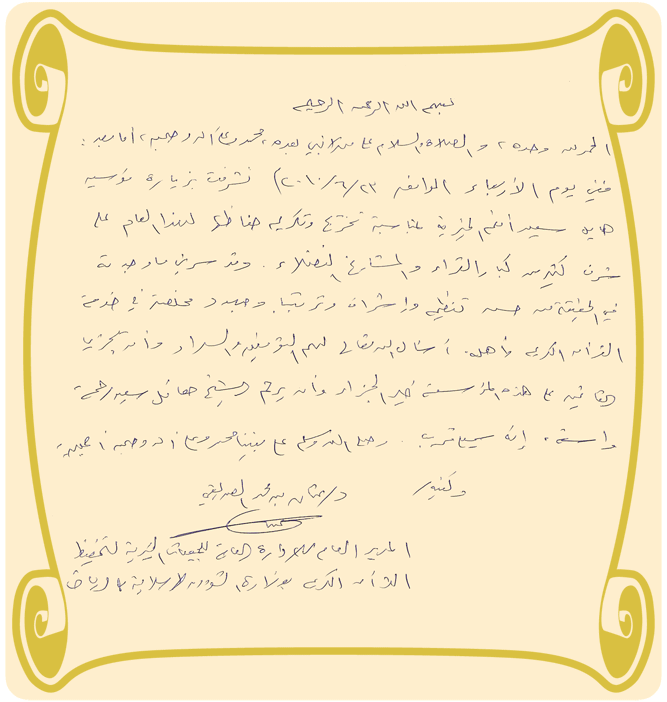 بسم الله الرحمن الرحيم
الحمد لله وحده، والصلاة والسلام على من لا نبي بعده، محمد وعلى آله وصحبه، أما بعد:
ففي يوم الأربعاء الموافق ٢٠١٠/٦/٢٣) تشرفت بزيارة مؤسسة
هايل سعيد أنعم الخيرية بمناسبة تخرج وتكريم حفاظها لهذا العام على
شرف كثير من كبار القراء والمشايخ الفضلاء. وقد سرني ما وجدته
في الحقيقة من حسن تنظيم وإشراف وترتيب وجهود مخلصة في خدمة
القرآن الكريم وأهله. أسأل الله تعالى لهم التوفيق والسداد وأن يجزي
القائمين على هذه المؤسسة خير الجزاء وأن يرحم الشيخ هائل سعيد رحمة
واسعة، إنه سميع قريب. وصلى الله وسلم على نبينا محمد وعلى آله وصحبه أجمعين
وكتبه د/ عثمان بن محمد الصديقي
المدير العام للإدارة العامة للجمعيات الخيرية لتحفيظ
القرآن الكريم بوزارة الشؤون الإسلامية بالرياض